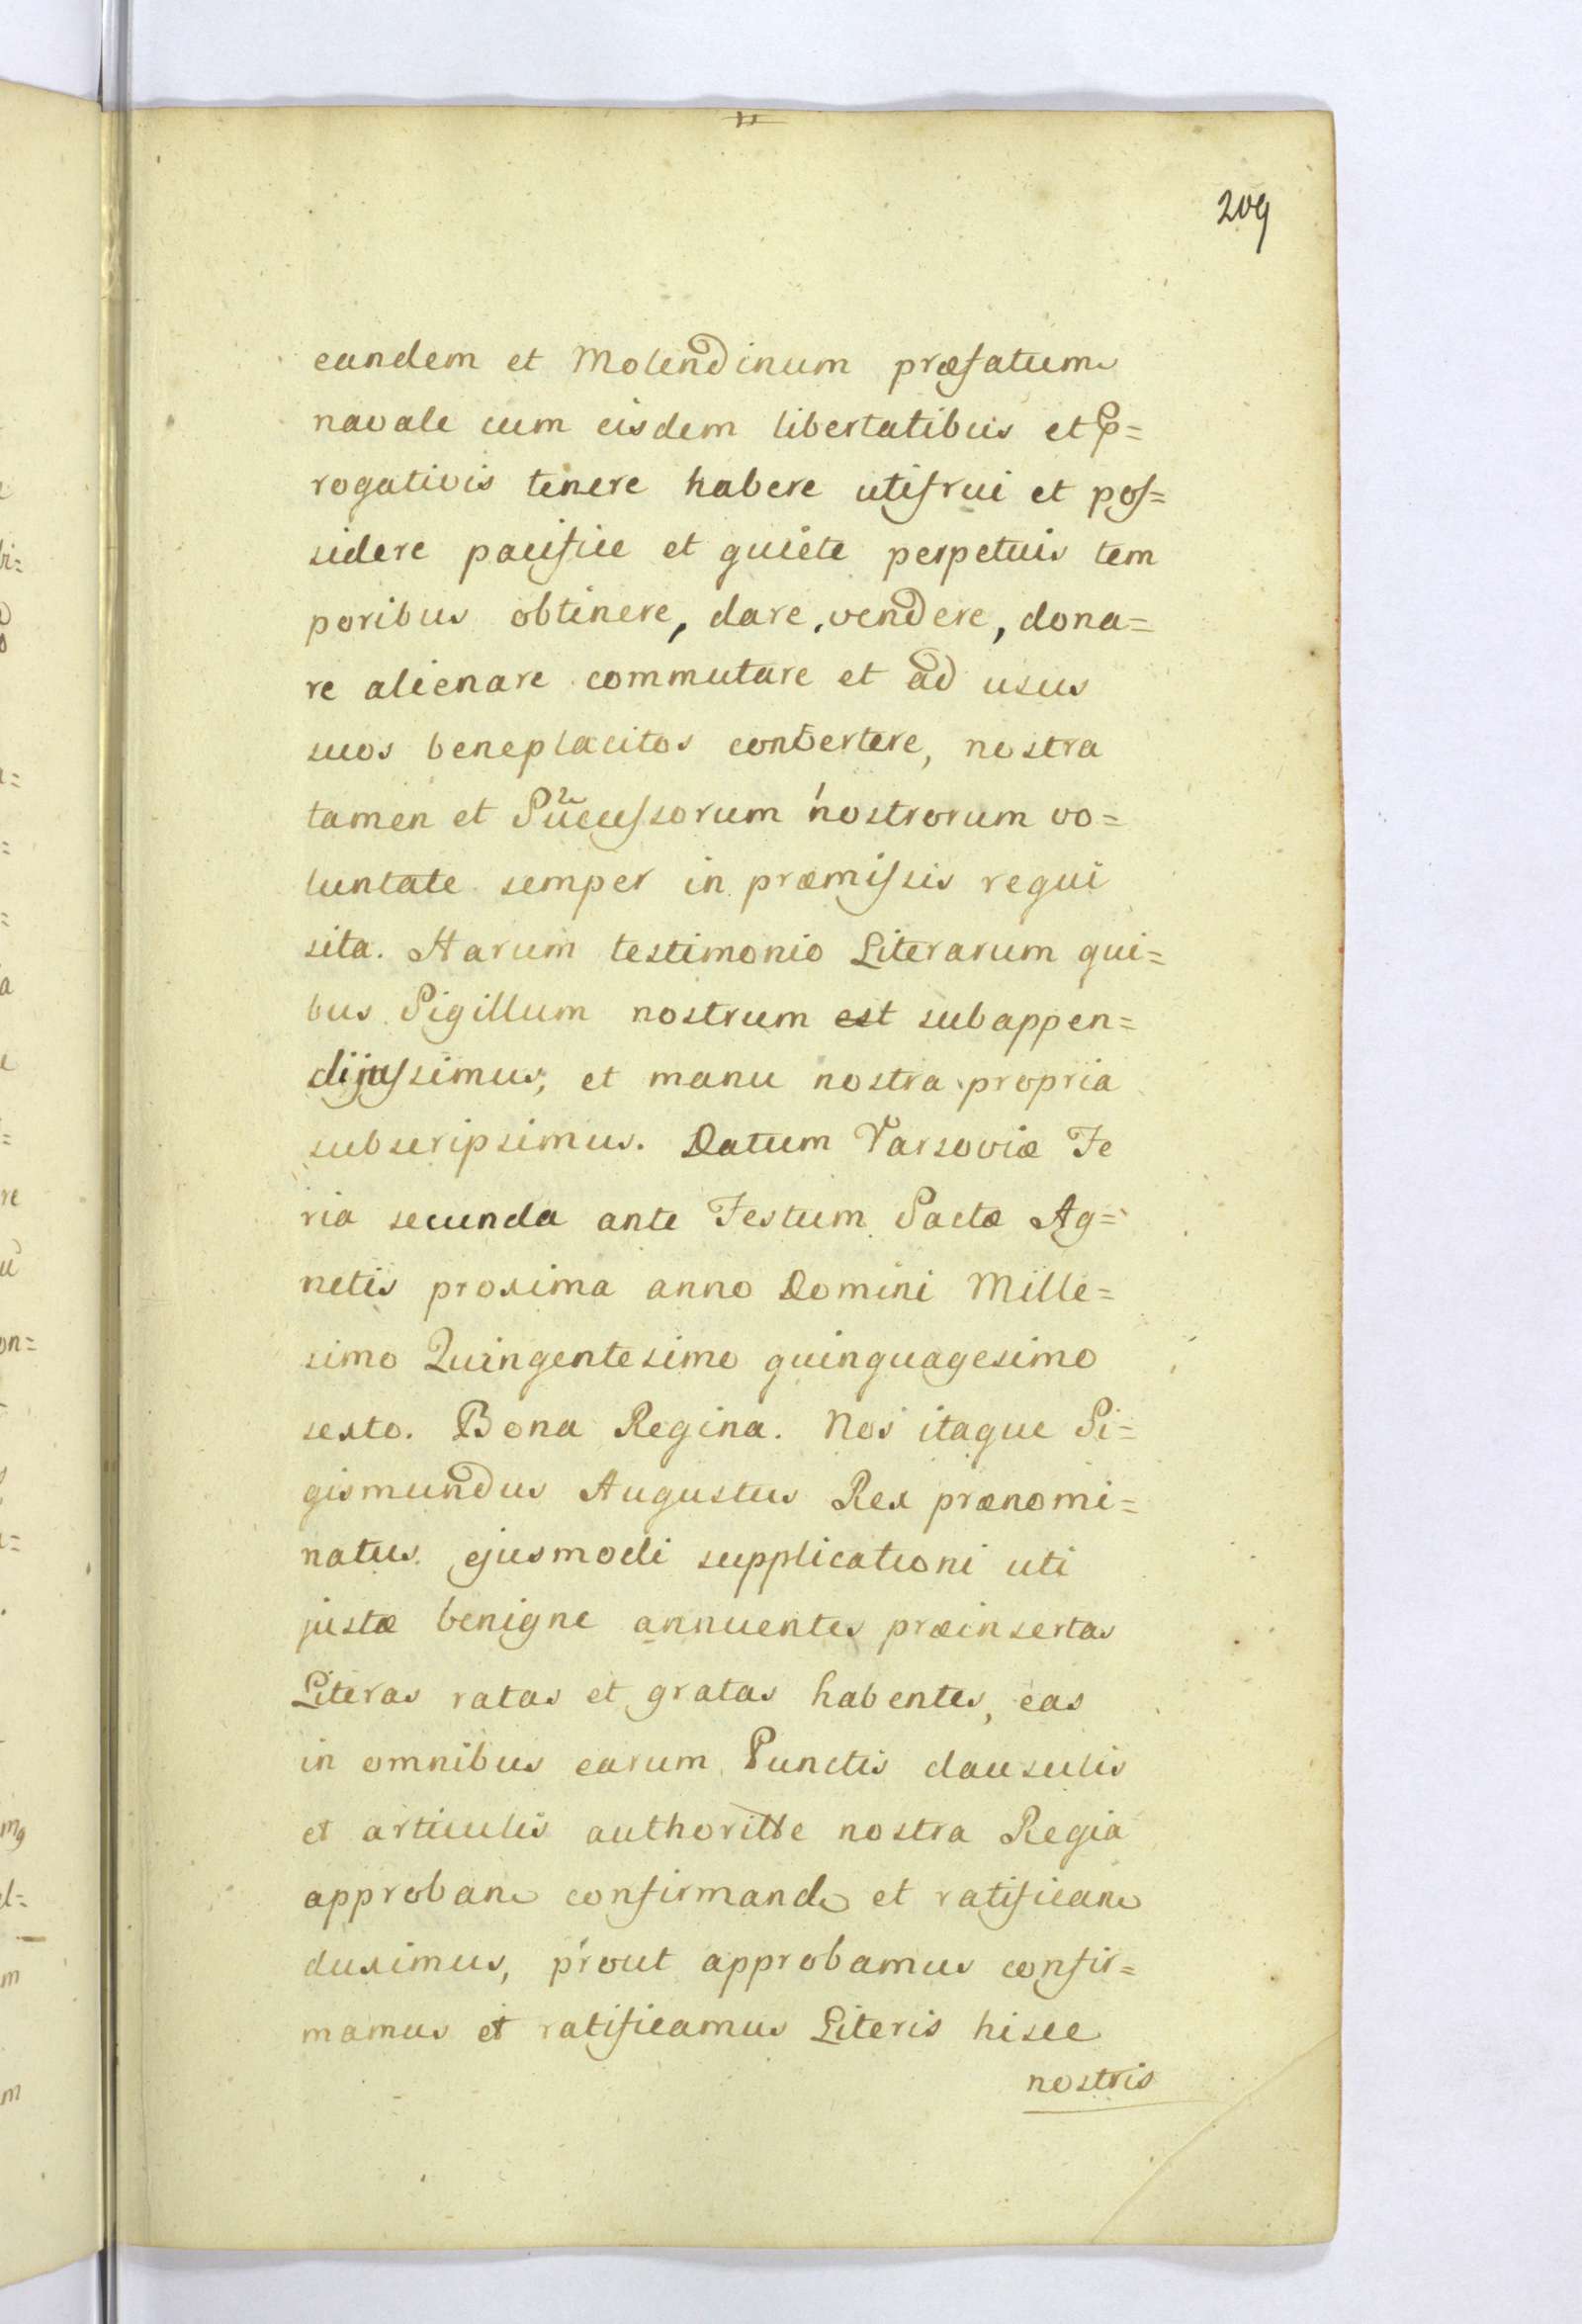 209
eandem et Molendinum præfatum
navale cum eisdem libertatibus et P=
rogativis tenere habere utifrui et pos=
sidere pacifice et quiete perpetuis tem
poribus obtinere, dare, vendere, dona=
re alienare commutare et ad usus
suos beneplacitos convertere, nostra
tamen et Successorum nostrorum vo=
luntate semper in præmissis requi
sita. Harum testimonio Literarum qui=
bus Sigillum nostrum est subappen=
et manu nostra propria
subscripsimus. Datum Varsoviæ Fe
ria secunda ante Festum Sactæ Ag=
netis proxima anno Domini Mille=
simo Quingentesimo quinquagesimo
sexto. Bona Regina. Nos itaque Si=
gismundus Augustus Rex prænomi=
natus ejusmodi supplicationi uti
justæ benigne annuentes præinsertas
Literas ratas et gratas habentes, eas
in omnibus earum Punctis clausulis
et articulis authoritte nostra Regia
approban confirmand et ratifican
duximus, prout approbamus confir=
mamus et ratificamus Literis hisce
nostris